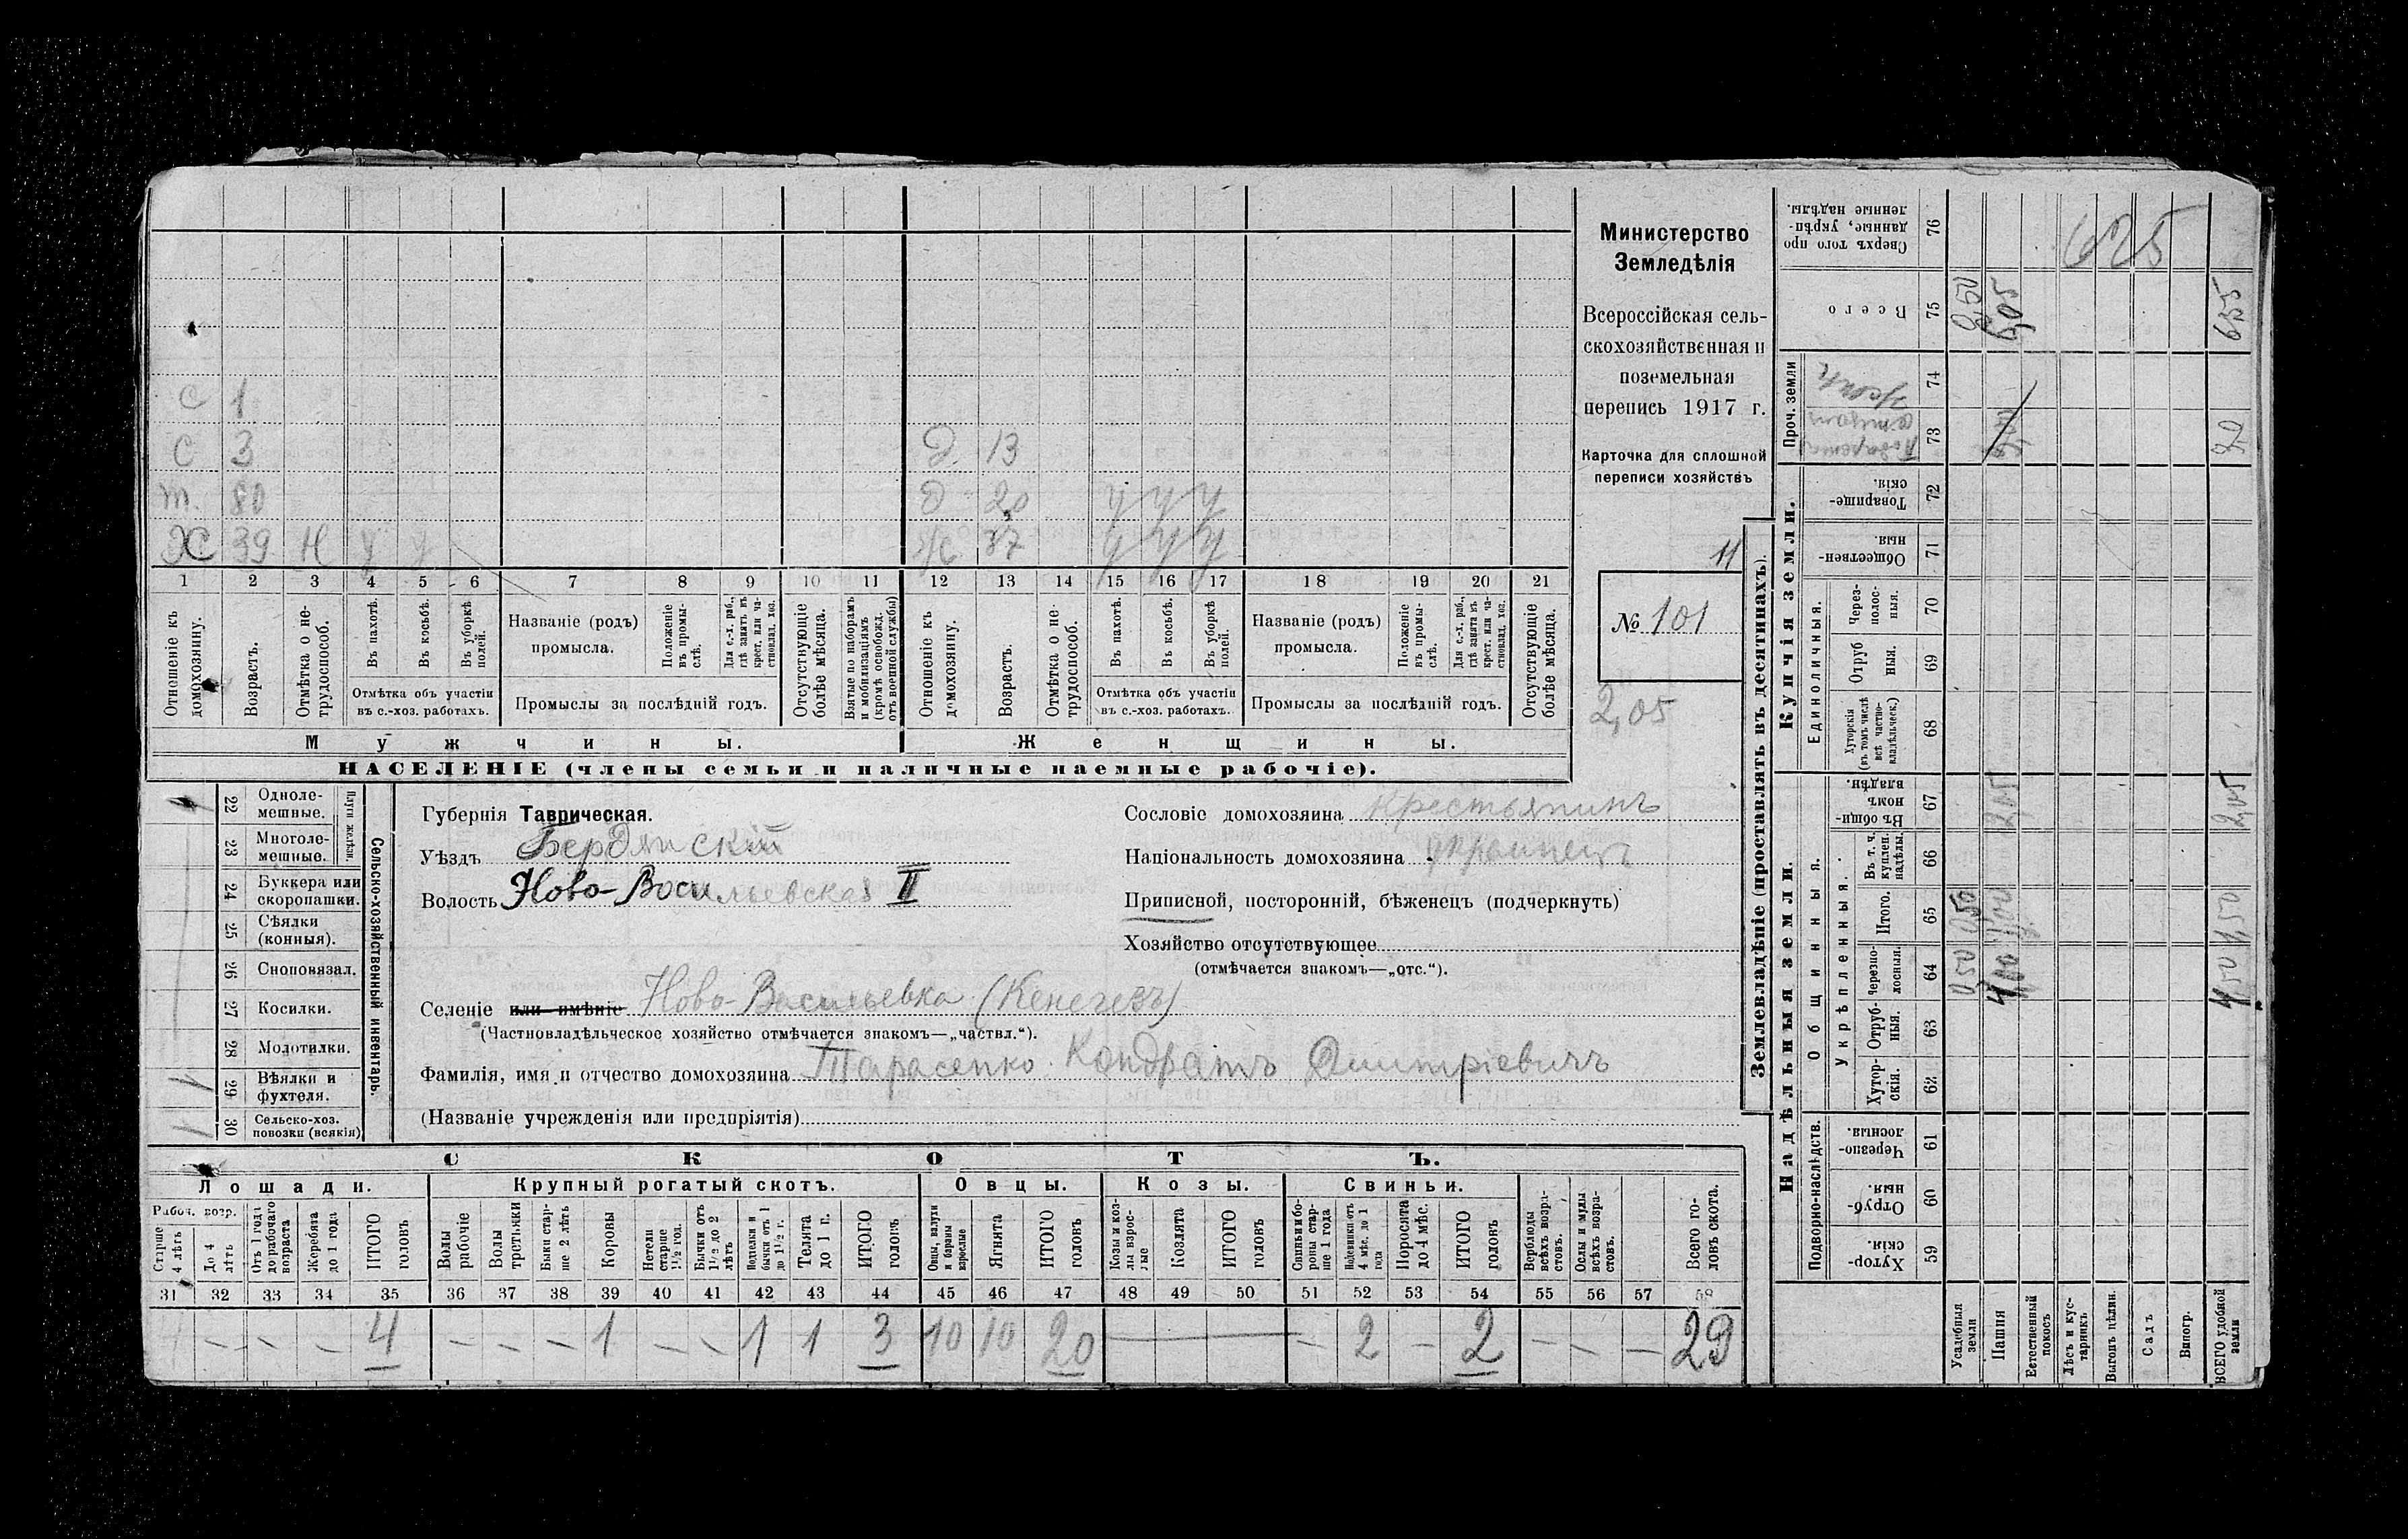 Министерство
Земледѣлія
Всероссійская сель-
скохозяйственная и
поземельная
перепись 1917 г.
Карточка для сплошной
переписи хозяйствъ
11
№ 101
2,05
С 1
С 3 Д. 13
М. 80 Д 20 У У У
ХС 39 Н У У 37 У У У
1 2 3 4 5 6 7 8 9 10 11 12 13 14 15 16 17 18 19 20 21
Отношеніе къ домохозяину.
Возрастъ.
Отмѣтка о не-трудоспособ.
Въ пахотѣ.
Въ косьбѣ.
Въ уборкѣ полей.
Отмѣтка объ участіи
въ с.-хоз. работахъ.
Названіе (родъ)
промысла.
Положеніе въ промы-слѣ.
Для с.-х. раб., гдѣ занятъ въ крест. или ча-стновлад. хоз.
Промыслы за послѣдній годъ.
Отсутствующіе болѣе мѣсяца.
Взятые по наборамъ и мобилизаціямъ (кромѣ освобожд. отъ военной службы)
Отношеніе къ домохозяину.
Возрастъ.
Отмѣтка о не-трудоспособ.
Въ пахотѣ.
Въ косьбѣ.
Въ уборкѣ полей.
Отмѣтка объ участіи
въ с.-хоз. работахъ.
Названіе (родъ)
промысла.
Положеніе въ промы-слѣ.
Для с.-х. раб., гдѣ занята въ крест. или ча-стновлад. хоз.
Промыслы за послѣдній годъ.
Отсутствующіе болѣе мѣсяца.
Мужчины. Женщины.
НАСЕЛЕНІЕ (члены семьи и наличные наемные рабочіе).
Сельско-хозяйственный инвентарь.
Плуги желѣзн.
22 Одноле-мешные.
23 Многоле-мешные.
24 Буккера или скоропашки.
25 Сѣялки (конныя).
26 Сноповязал.
27 Косилки.
28 Молотилки.
1 29 Вѣялки и фухтеля.
1 30 Сельско-хоз. повозки (всякія)
Губернія Таврическая.
Уѣздъ Бердянскій
Волость Ново-Васильевская II
Селеніе или имѣніе Ново-Васильевка (Кенегезъ)
(Частновладѣльческое хозяйство отмѣчается знакомъ—„частвл.“).
Фамилія, имя и отчество домохозяина Тарасенко Кондратъ Дмитріевичъ
(Названіе учрежденія или предпріятія)
Сословіе домохозяина крестьянинъ
Національность домохозяина украинецъ
Приписной, посторонній, бѣженецъ (подчеркнуть)
Хозяйство отсутствующее
(отмѣчается знакомъ—„отс.“).
СКОТЪ.
Лошади. Крупный рогатый скотъ. Овцы. Козы. Свиньи.
Рабоч. возр.
Старше 4 лѣтъ
До 4 лѣтъ
Отъ 1 года до рабочаго возраста
Жеребята до 1 года
ИТОГО головъ
Волы рабочіе
Волы третьяки
Быки стар-ше 2 лѣтъ
Коровы
Нетели старше 1½ год.
Бычки отъ 1½ до 2 лѣтъ
Нетелки и бычки отъ 1 до 1½ г.
Телята до 1 г.
ИТОГО головъ
Овцы, валухи и бараны взрослые
Ягнята
ИТОГО головъ
Козы и коз-лы взрос-лые
Козлята
ИТОГО головъ
Свиньи и бо-ровы стар-ше 1 года
Подсвинки отъ 4 мѣс. до 1 года
Поросята до 4 мѣс.
ИТОГО головъ
Верблюды всѣхъ возра-стовъ.
Ослы и мулы всѣхъ возра-стовъ.
Всего го-ловъ скота.
31 32 33 34 35 36 37 38 39 40 41 42 43 44 45 46 47 48 49 50 51 52 53 54 55 56 57 58
— — — 4 — — — 1 — — 1 1 3 10 10 20 — 2 — 2 — — — 29
Землевладѣніе (проставлять въ десятинахъ).
Надѣльныя земли. Купчія земли.
Проч. земли
Подворно-наслѣдств.
Общинныя.
Укрѣпленныя.
Единоличныя.
Хутор-скія. 59
Отруб-ныя. 60
Черезпо-лосныя. 61
Хутор-скія. 62
Отруб-ныя. 63
Черезпо-лосныя. 64
Итого. 65
Въ т. ч. куплен. надѣлы. 66
Въ общи-номъ владѣн. 67
Хуторскія (въ томъ числѣ всѣ частно-владѣльческ.) 68
Отруб ныя. 69
Через-полос-ныя. 70
Обществен-ныя. 71
Товарище-скія. 72
73
74
Всего 75
Сверхъ того про-данные, укрѣп-ленные надѣлы. 76
Усадебныя земли
0,50 0,50
Пашня
4,00 2,05
6,05
Естественный покосъ
Лѣсъ и кус-тарникъ
Выгонъ цѣлин.
Садъ
Виногр.
ВСЕГО удобной земли
4,50 2,05
655
625